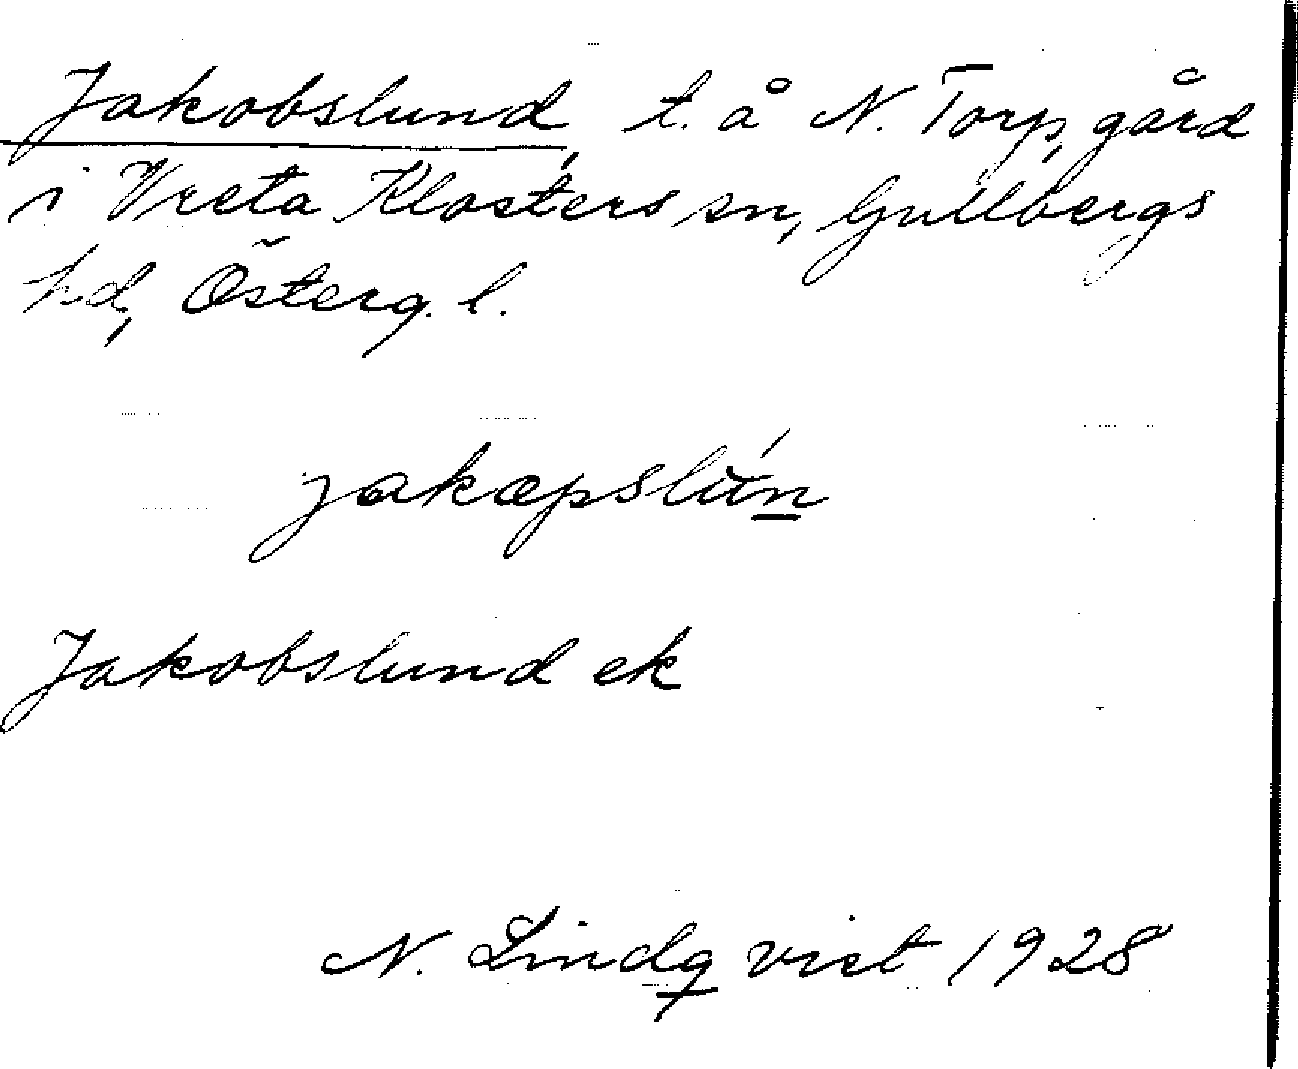 Jakobslund, t. å N. Torp, gård
i Vreta Klosters sn, Gullbergs
hd, Österg. l.
jakɑpslún
Jakobslund ek
N. Lindqvist 1928